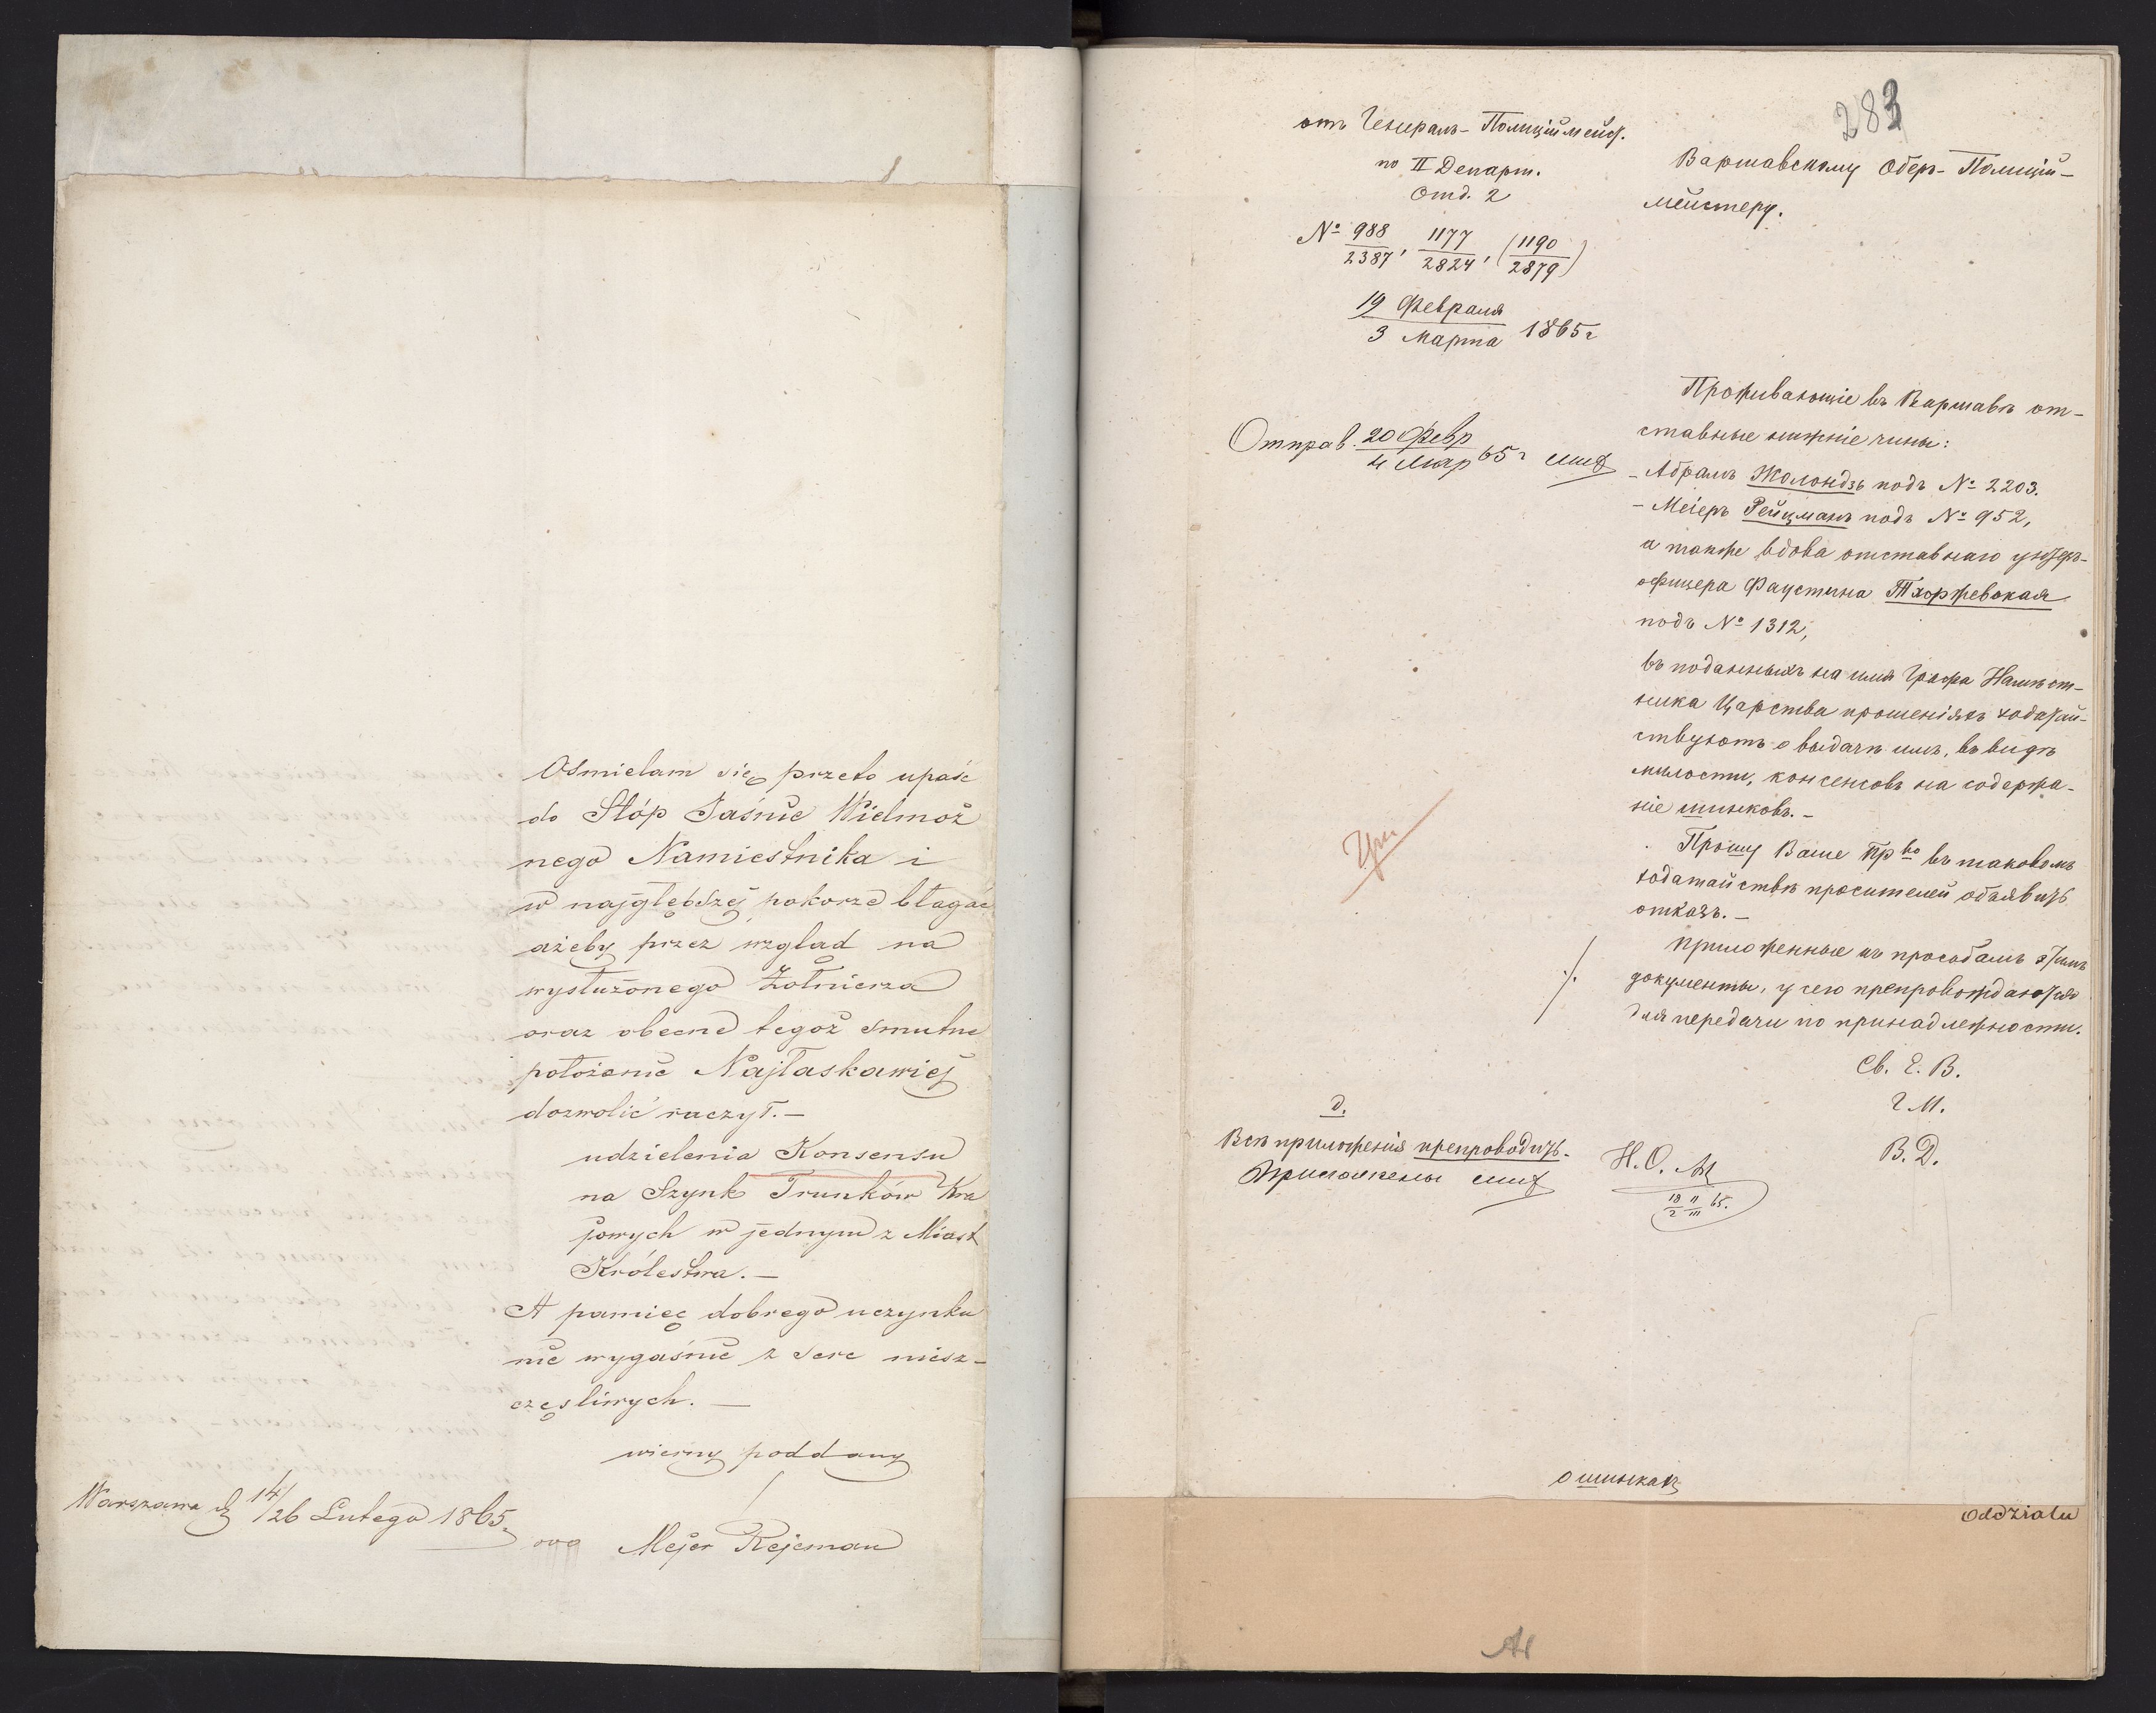 Ośmielam się przeto upaść
do Stóp Jaśnie Wielmoż
nego Namiestnika i
w najgłębszej pokorze błagać
ażeby przez wzgląd na
wysłużonego Żołnierza
oraz obecne tegoż smutne
położenie Najłaskawiej
dozwolić raczył.—
udzielenia Konsensu
na Szynk Trunków Kra
jowych w jednym z Miast
Królestwa.—
A pamięć dobrego uczynku
nie wygaśnie z serc niesz-
częsliwych.—
wierny poddany
Warszawa d 14/26 Lutego 1865.
Mejer Rejcman
283
отъ Генералъ-Полиціймейст.
по II Департ.
Отд. 2
№ 988/2387, 1177/2824, (1190/2879)
19 Февраля
3 Марта 1865 г
Варшавскому Оберъ-Полицій-
мейстеру.
Отправ. 20 Февр/4 Мар 65 г
Проживающіе въ Варшавѣ от-
ставные нижніе чины:
- Абрамъ Жолондзь подъ № 2203.
- Меіеръ Рейцманъ подъ № 952,
а также вдова отставнаго унтеръ-
офицера Фаустина Тхоржевская
подъ № 1312,
въ поданныхъ на имя Графа Намѣст-
ника Царства прошеніяхъ ходатай-
ствуютъ о выдачѣ имъ, въ видѣ
милости, консенсовъ на содержа-
ніе шинковъ.—
Прошу Ваше Пр-во въ таковомъ
ходатайствѣ просителей объявить
отказъ.—
Приложенные къ просьбамъ этимъ
документы, у сего препровождаются
для передачи по принадлежности.
Св. Е. В.
Г. М.
В. Д.
д.
Всѣ приложенія препроводить.
Приложены
Н. О.
18/2 II/III 65.
о шинкахъ
Oddziału